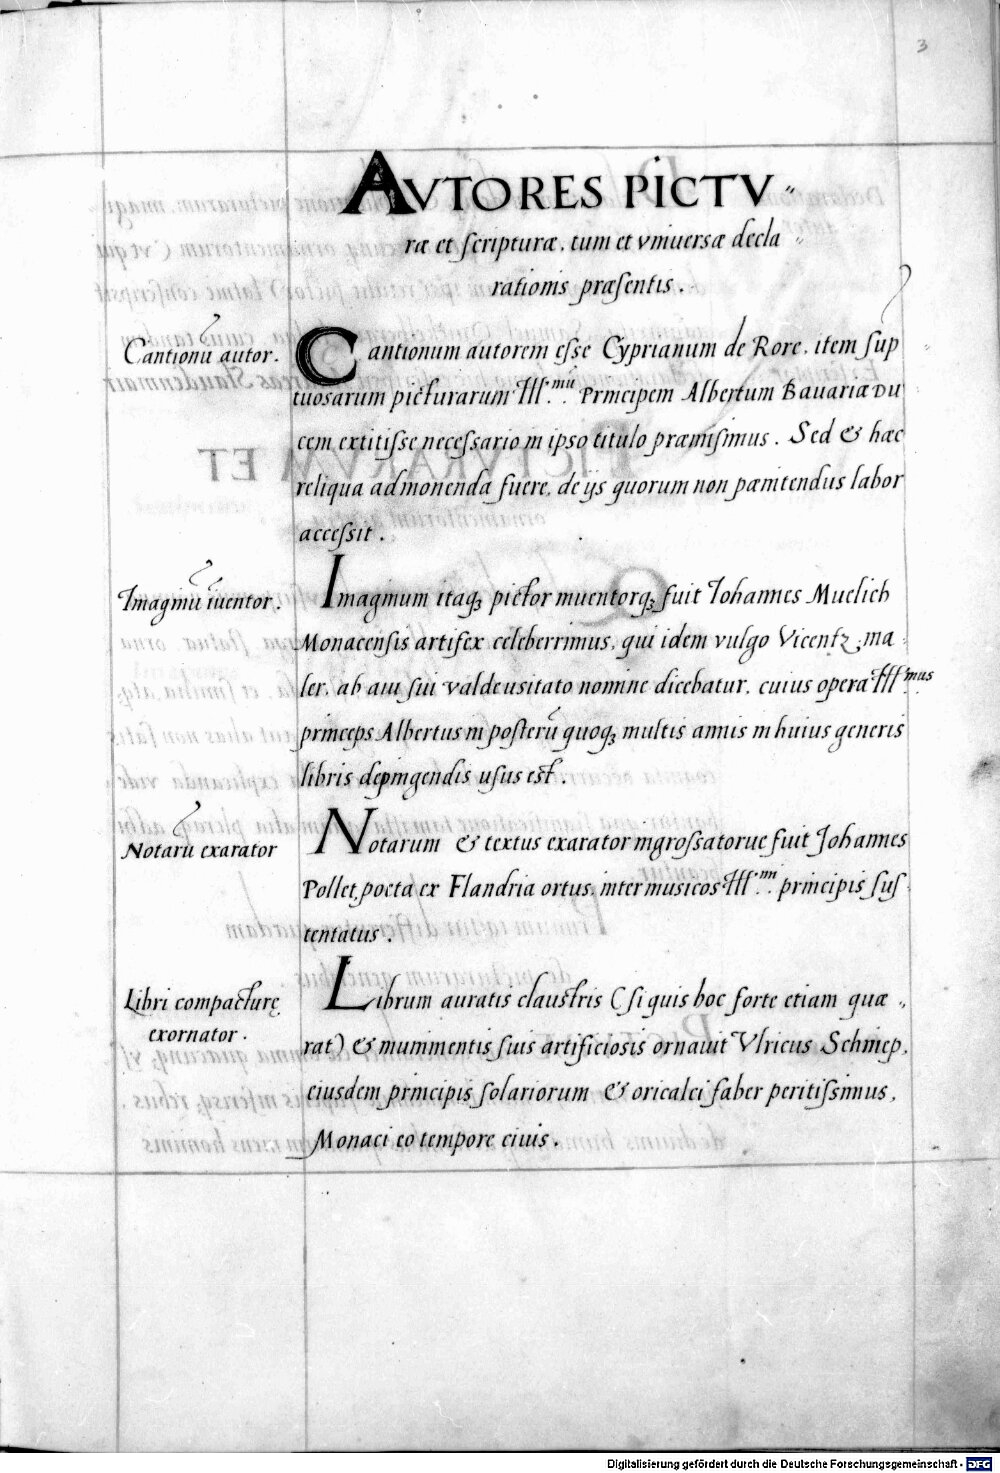 3
AVTORES PICTV〃
ræ et ſcripturæ, tum et vniuersæ decla〃
rationis præſentis.
Cantionū autor.
Cantionum autorem eſse Cyprianum de Rore, item ſup〃
tuosarum picturarum Ill.mū Principem Albertum Bauariæ DU
cem extitiſse neceſsario in ipso titulo præmiſimus. Sed & hæc
reliqua admonenda fuere, de ijs quorum non pœnitendus labor
acceſsit.
Imaginū īuentor.
Imaginum itaqꝫ pictor inuentorqꝫ fuit Iohannes Muelich
Monacenſis artifex celeberrimus, qui idem vulgo Vicentz, ma〃
ler, ab aui ſui valde usitato nomine dicebatur, cuius opera Ill.mus
princeps Albertus in poſterū quoqꝫ multis annis in huius generis
libris depingendis uſus eſt.
Notarū exarator
Notarum & textus exarator ingroſsatorue fuit Iohannes
Pollet, poeta ex Flandria ortus, inter musicos Ill.mi principis ſuſ
tentatus.
Libri compacturę
exornator.
Librum auratis clauſtris (ſi quis hoc forte etiam quæ〃
rat) & munimentis ſuis artificiosis ornauit Vlricus Schniep,
eiusdem principis ſolariorum & oricalci faber peritiſsimus,
Monaci eo tempore ciuis.
Digitalisierung gefördert durch die Deutsche Forschungsgemeinschaft - DFG